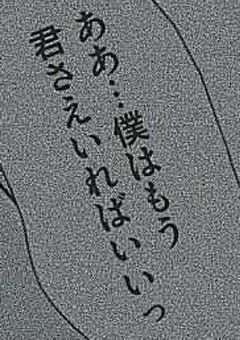 ああ…僕はもう
君さえいればいいっ